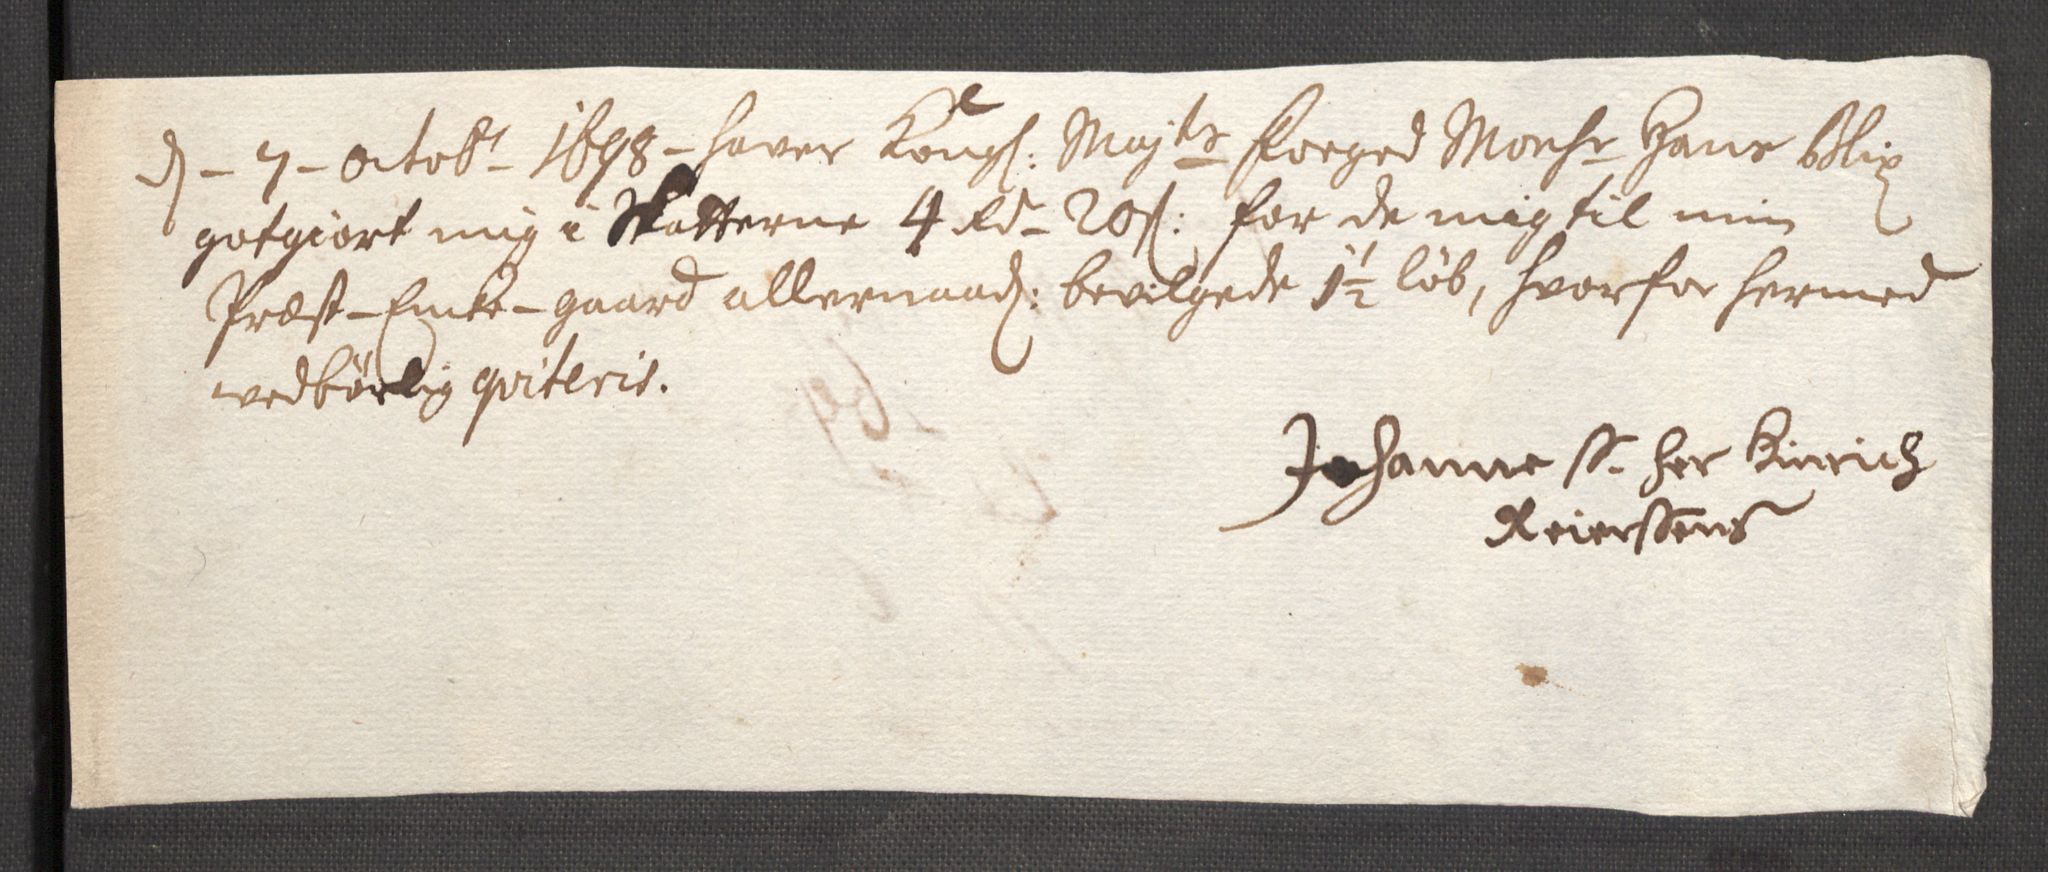 d – 7 – octobr – 1698 – haver Kongl: Majts Foeged Monsr Hans Blix
gotgiort mig i Skatterne 4 Rd – 20 s: for de mig til min
Præst-Encke-gaard allernaad: bevilgede 1½ löb, hvorfor hermed
vedbörlig qviteris.
Johanne S. her Hinrich
Reierssens